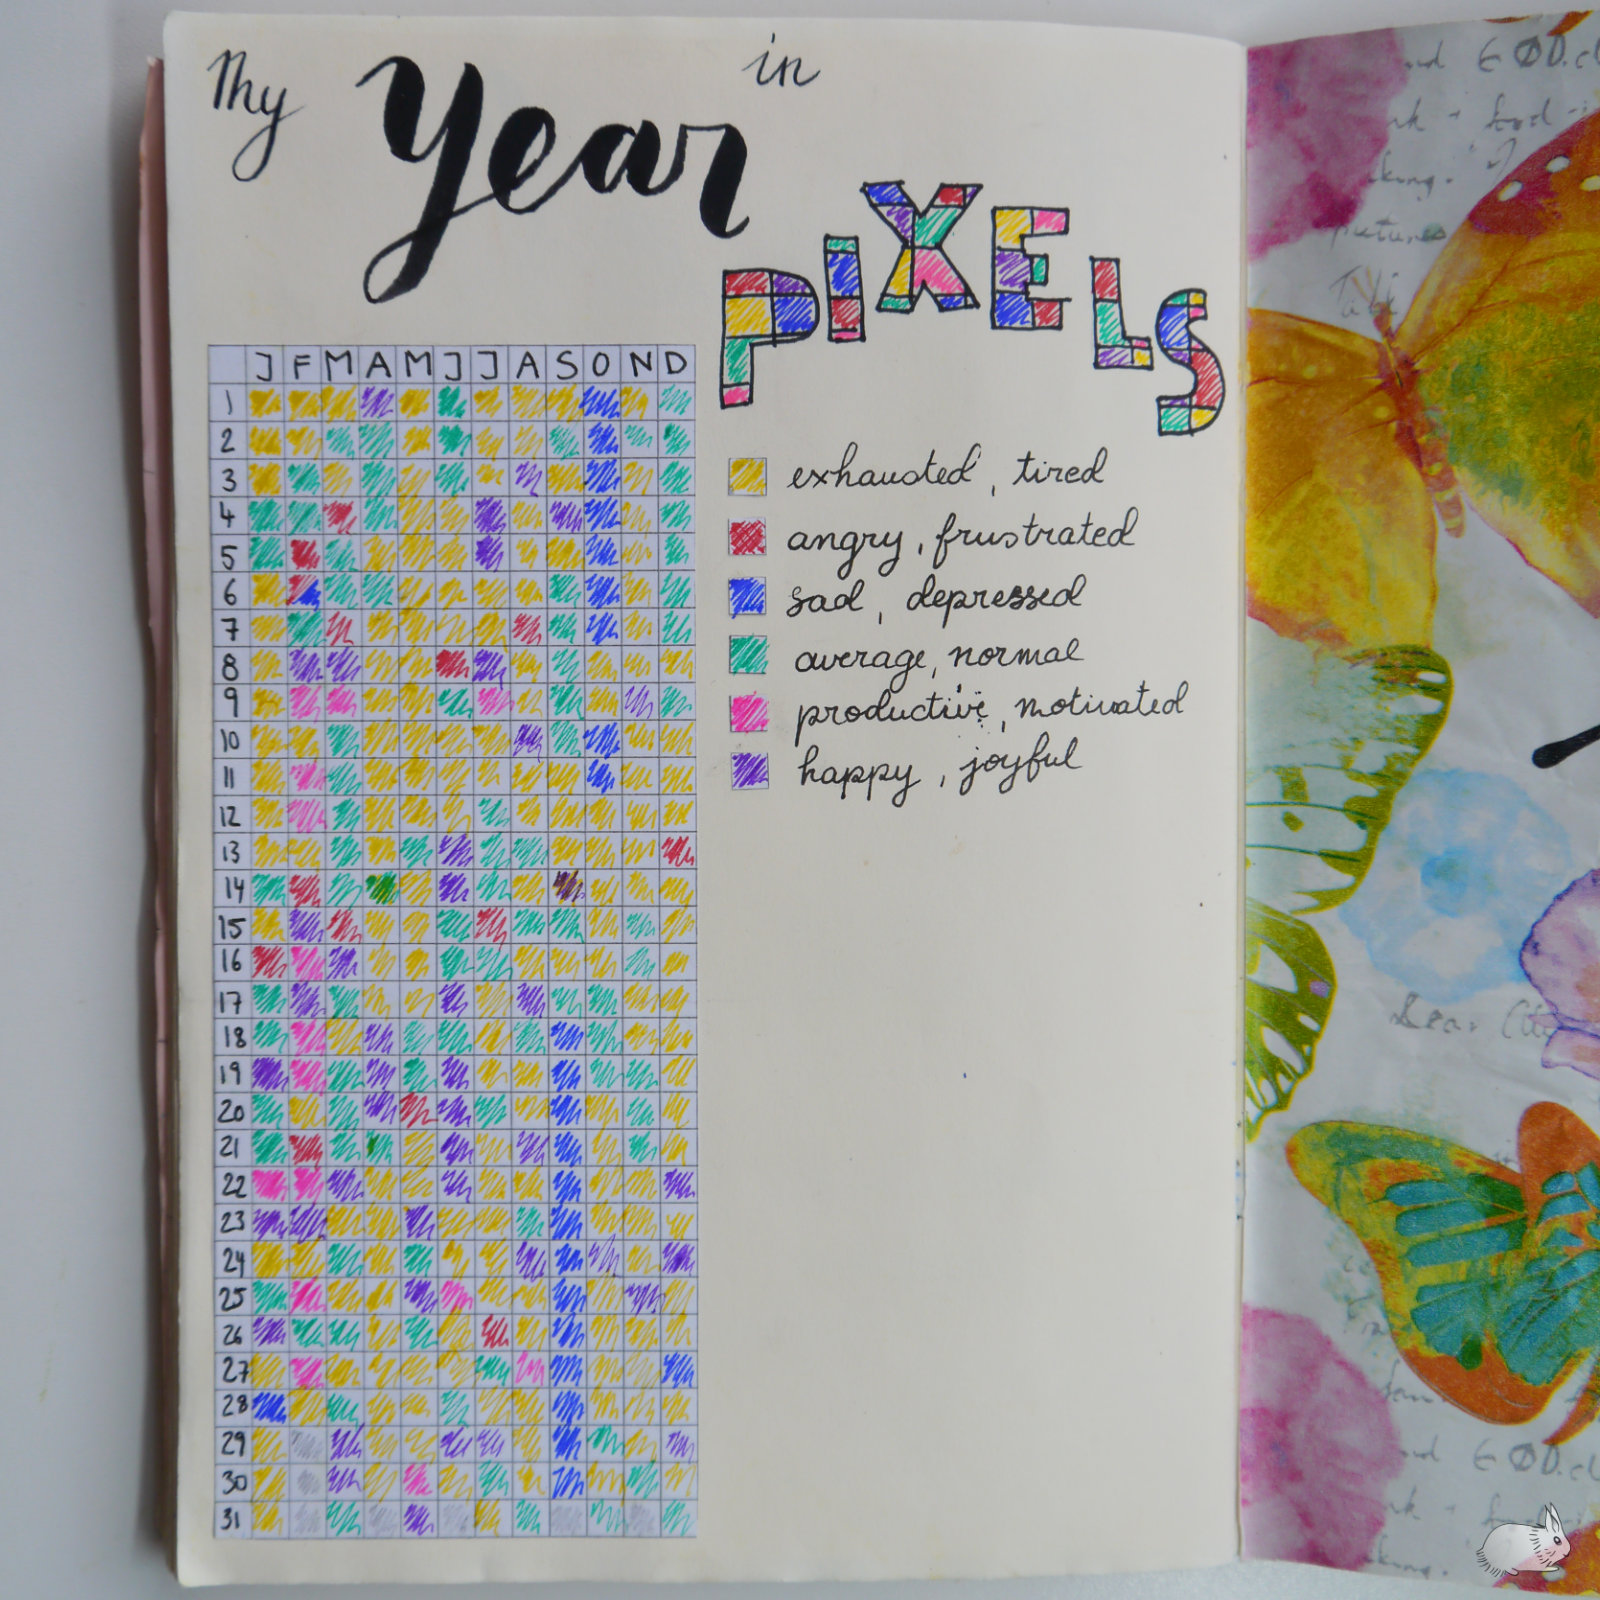 My Year in
PIXELS
J F M A M J J A S O N D
1
2
3
4
5
6
7
8
9
10
11
12
13
14
15
16
17
18
19
20
21
22
23
24
25
26
27
28
29
30
31
exhausted, tired
angry, frustrated
sad, depressed
average, normal
productive, motivated
happy, joyful